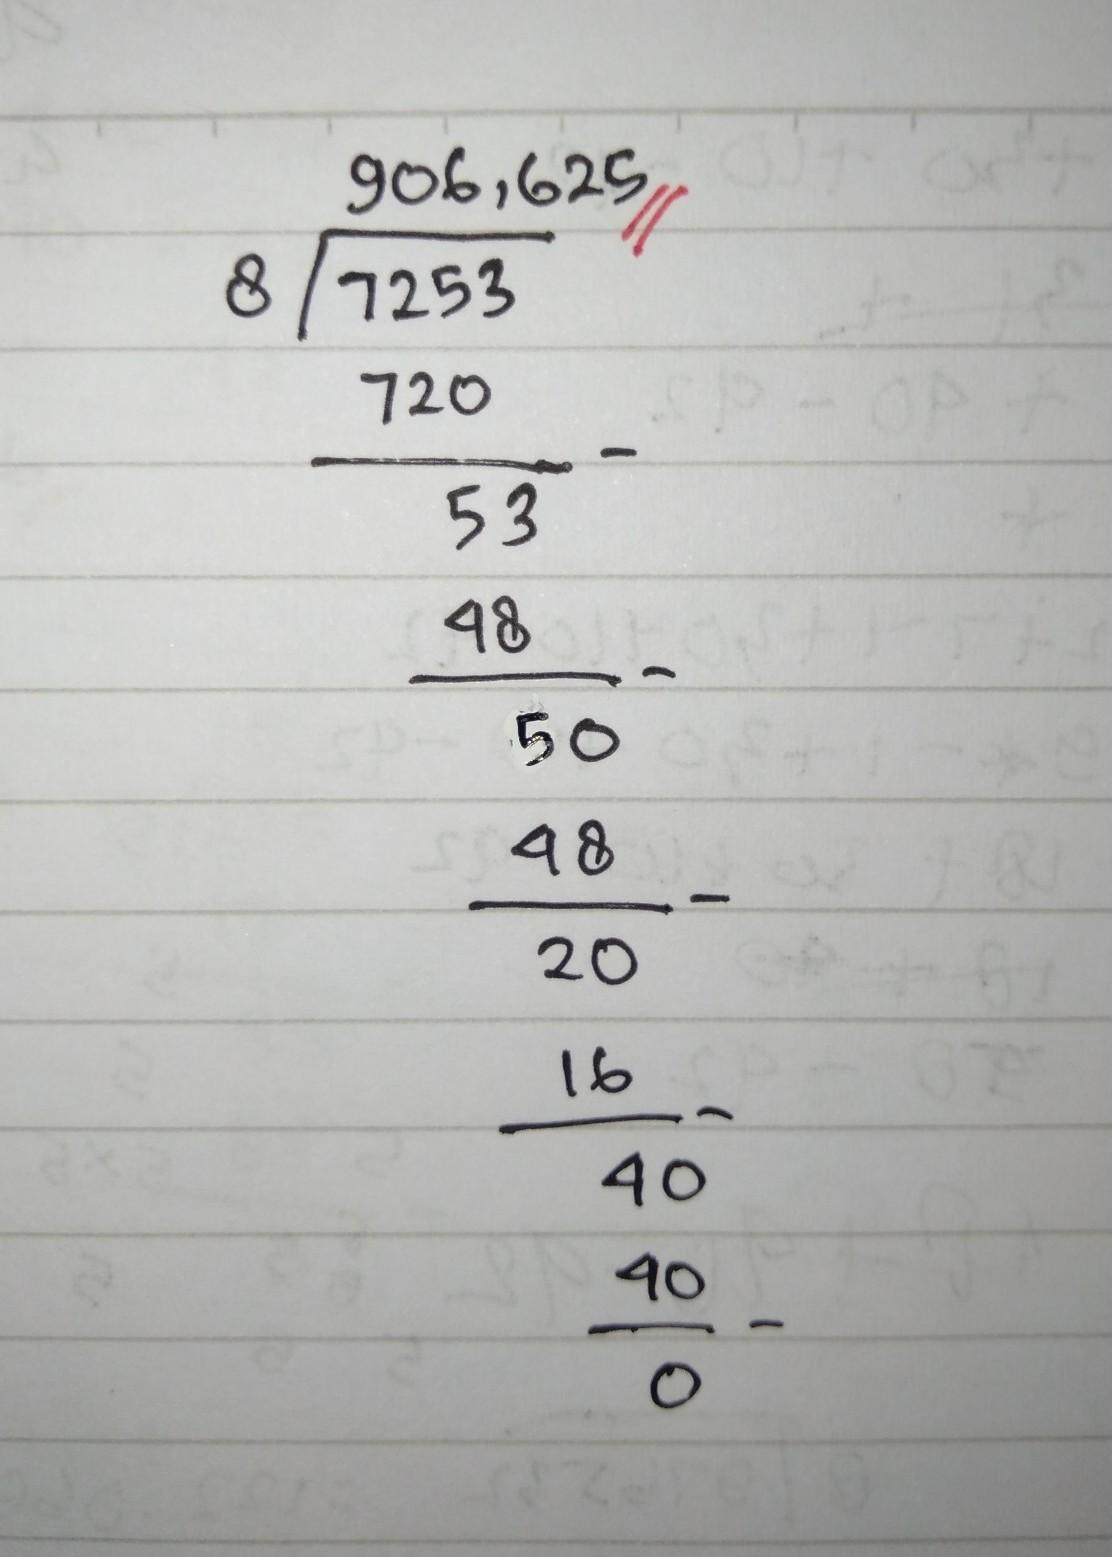 906,625
8 7253
720
-
53
48
-
50
48
-
20
16
-
40
40
-
0